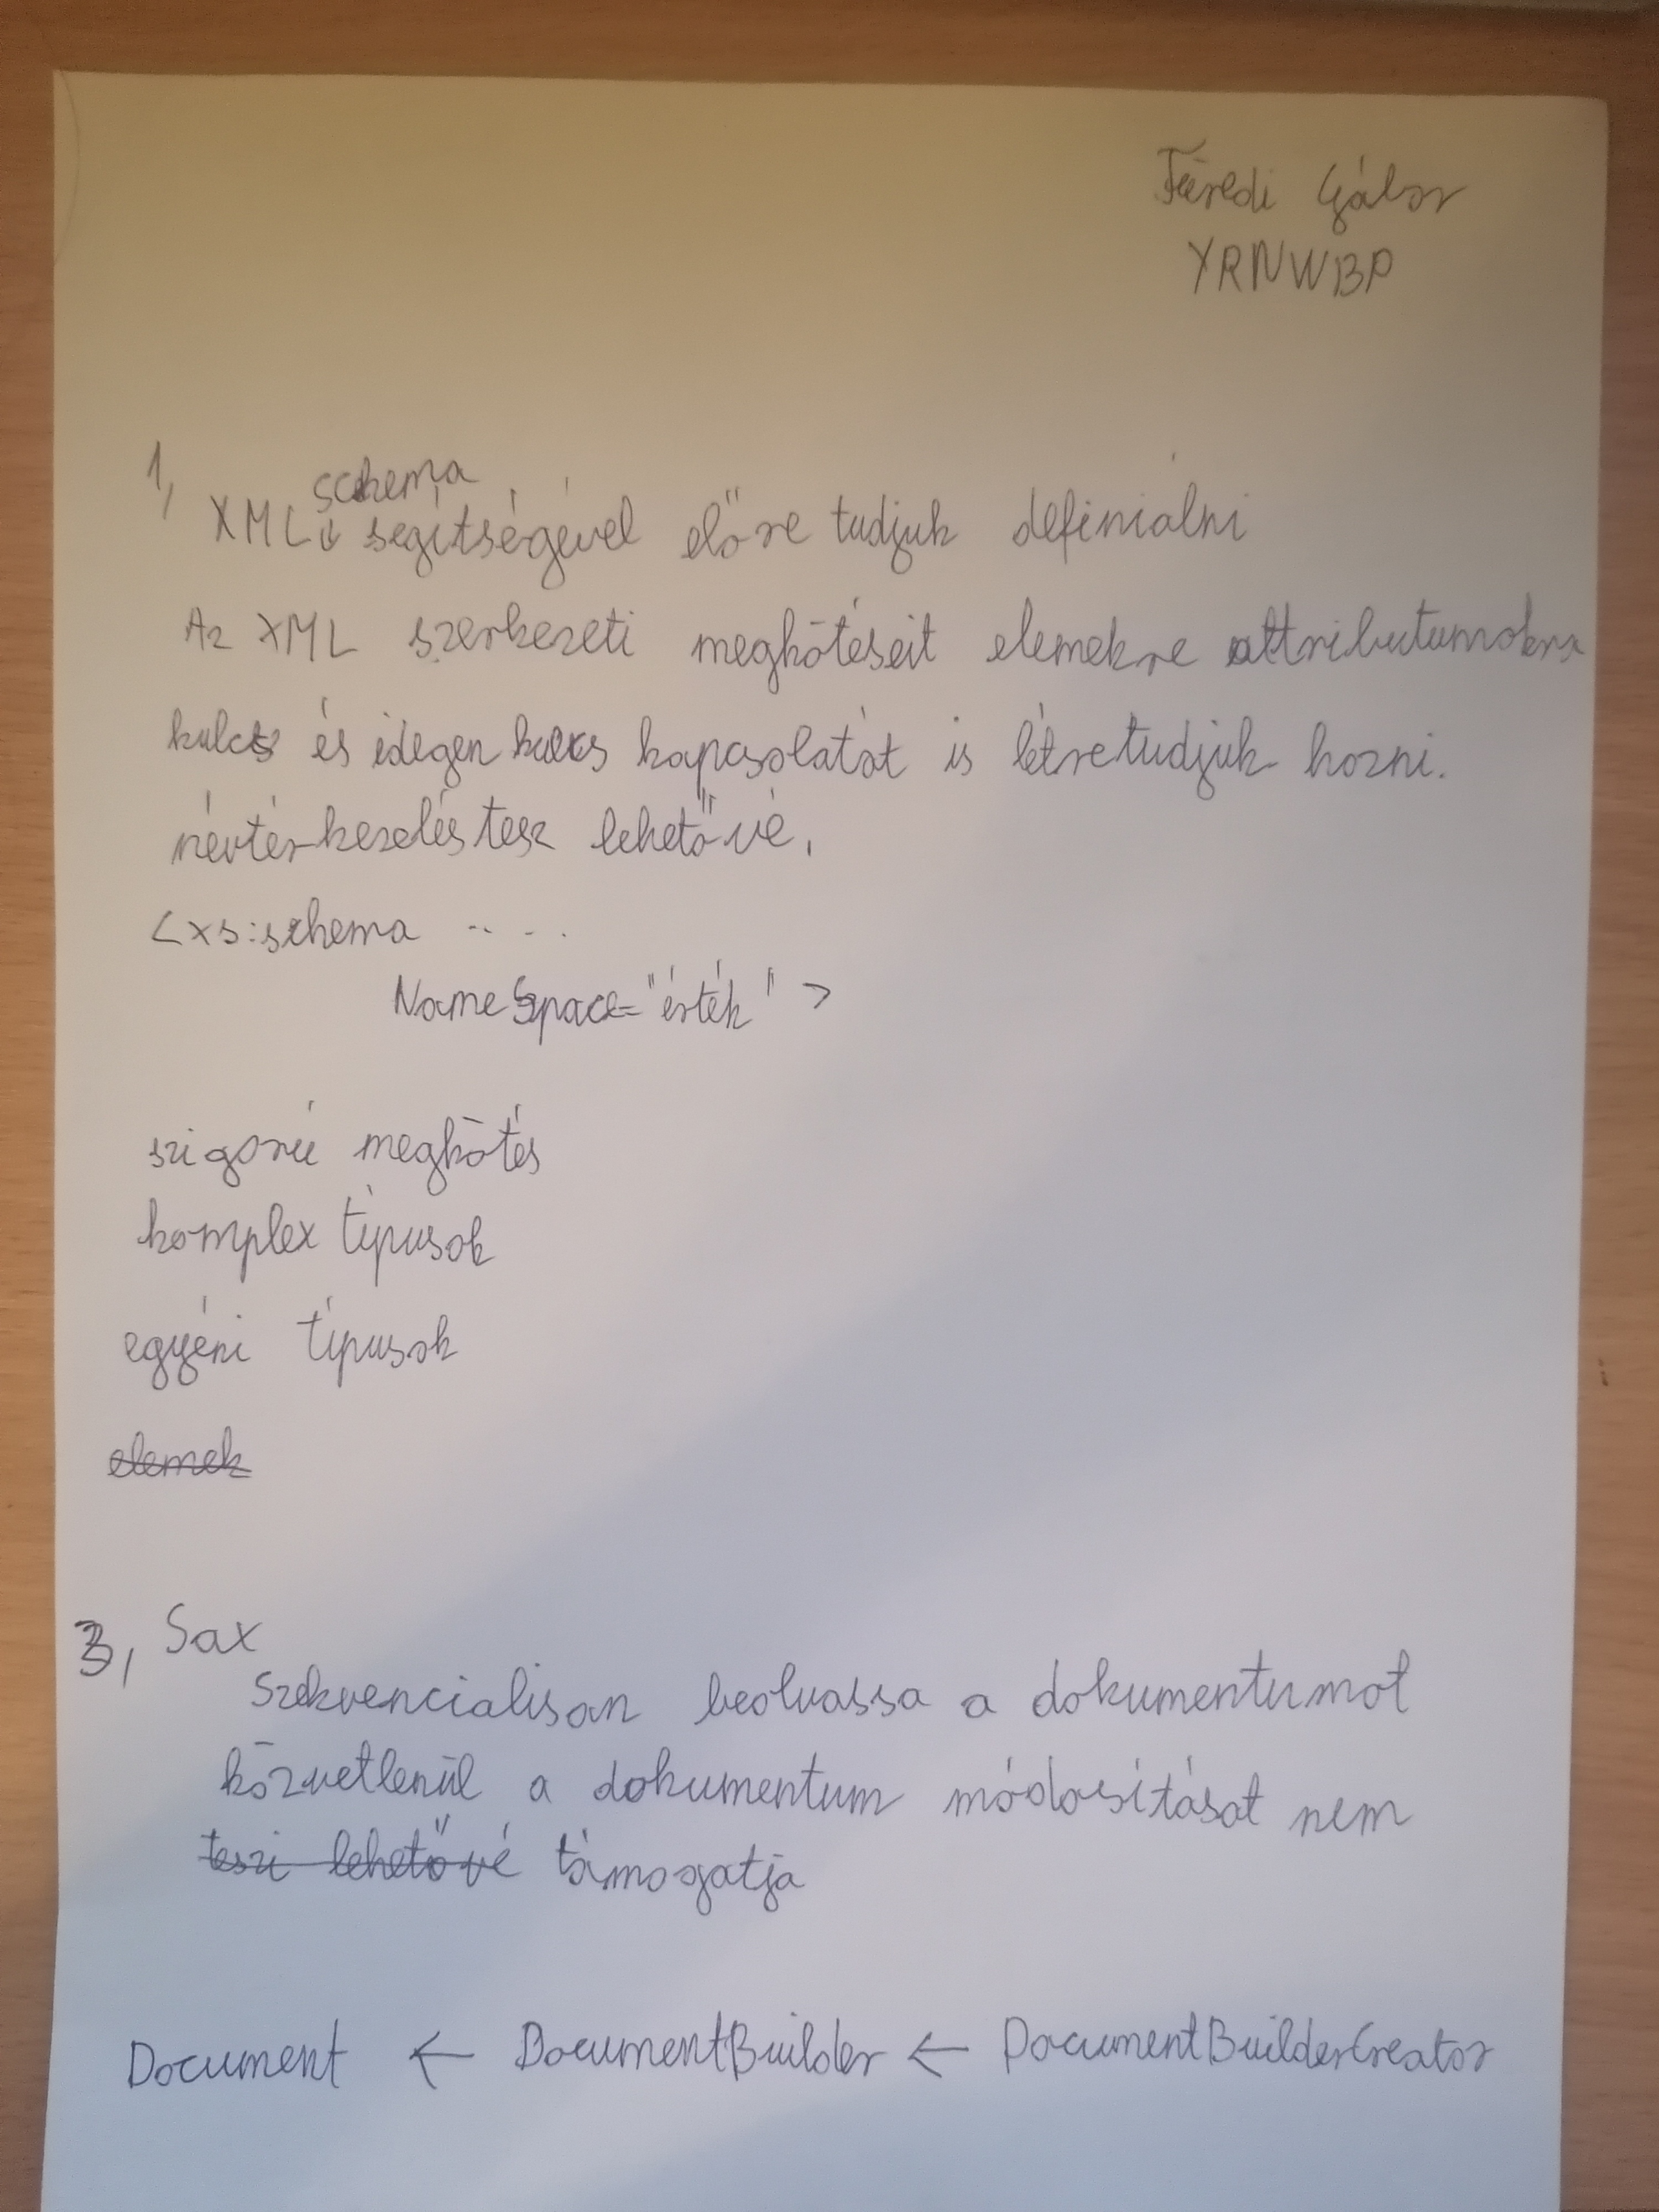 Füredi Gábor
YRNWBP
1, schema
XML segítségével előre tudjuk definiálni
Az XML szerkezeti megkötéseit elemekre attributumokra
kulcs és idegen kulcs kapcsolatát is létretudjuk hozni.
névtérkezelés tesz lehetővé.
<xs:schema .. . .
NameSpace="érték" >
szigorú megkötés
komplex típusok
egyéni típusok
elemek
3, Sax
Szekvenciálisan beolvassa a dokumentumot
közvetlenül a dokumentum módosítását nem
teszi lehetővé támogatja
Document ← DocumentBuilder ← DocumentBuilderCreator